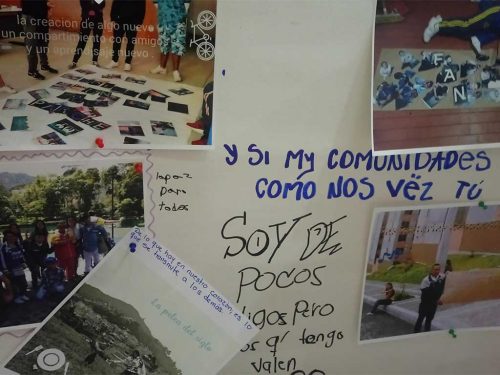 la creacion de algo nuevo
un compartimiento con amigos
y un aprendisaje nuevo
FAN
Y SI MY COMUNIDADES
COMO NOS VËZ TÚ
la paz
Para
todos
SOY DE
POCOS
igos PERO
os q' tengo
valen
De lo que hay en nuestro corazon, es lo
que se transmite a los demas.
La pelea del siglo